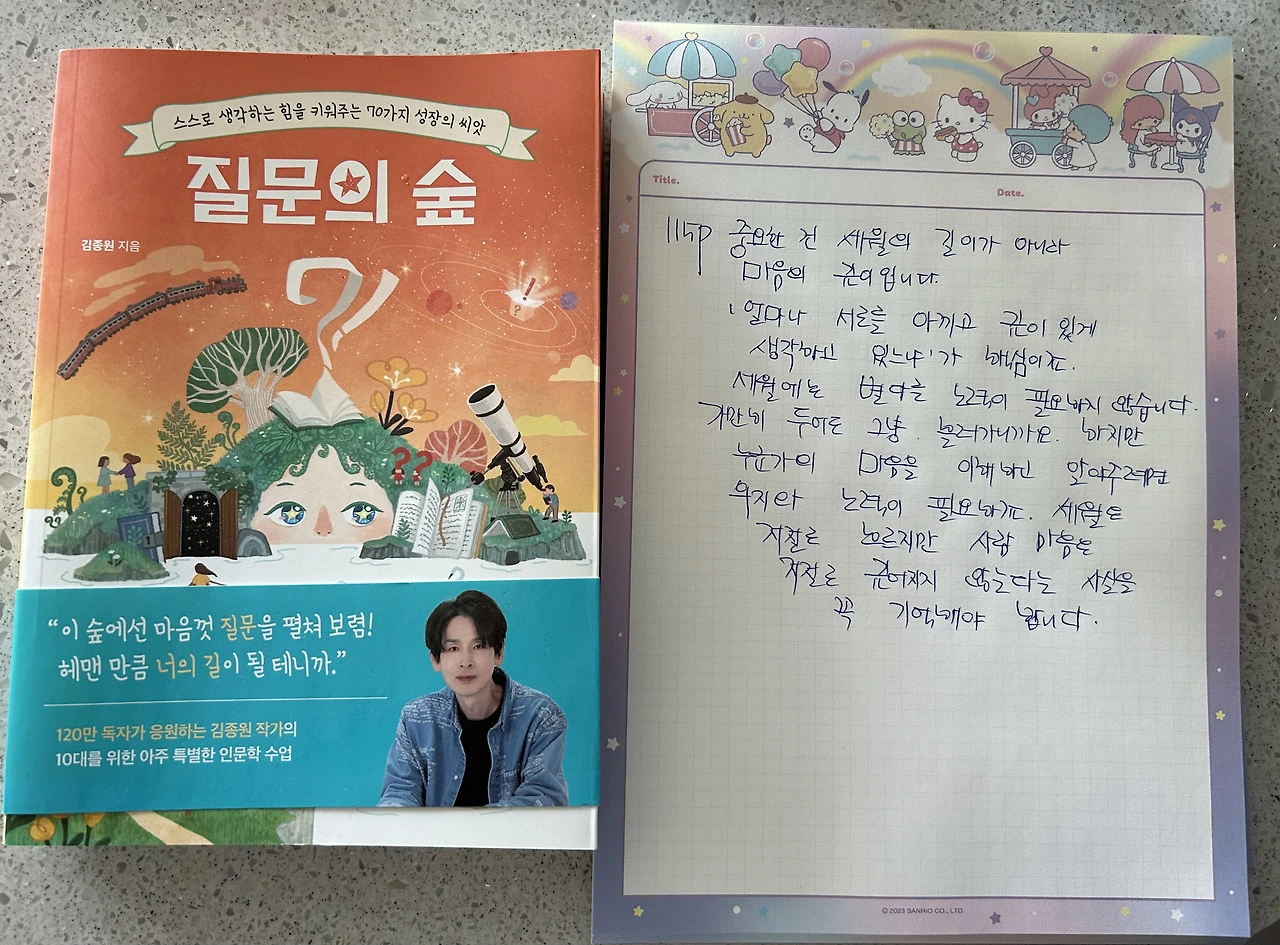 스스로 생각하는 힘을 키워주는 70가지 성장의 씨앗
질문의 숲
김종원 지음
“이 숲에선 마음껏 질문을 펼쳐 보렴!
헤맨 만큼 너의 길이 될 테니까.”
120만 독자가 응원하는 김종원 작가의
10대를 위한 아주 특별한 인문학 수업
Title.
Date.
115p 중요한 건 세월의 길이가 아니라
마음의 깊이입니다.
'얼마나 서로를 아끼고 깊이 있게
생각하고 있느냐'가 핵심이죠.
세월에는 별다른 노력이 필요하지 않습니다.
가만히 두어도 그냥 흘러가니까요. 하지만
누군가의 마음을 이해하고 알아주려면
의지와 노력이 필요하죠. 세월은
저절로 흐르지만 사람 마음은
저절로 깊어지지 않는다는 사실을
꼭 기억해야 합니다.
© 2023 SANRIO CO., LTD.